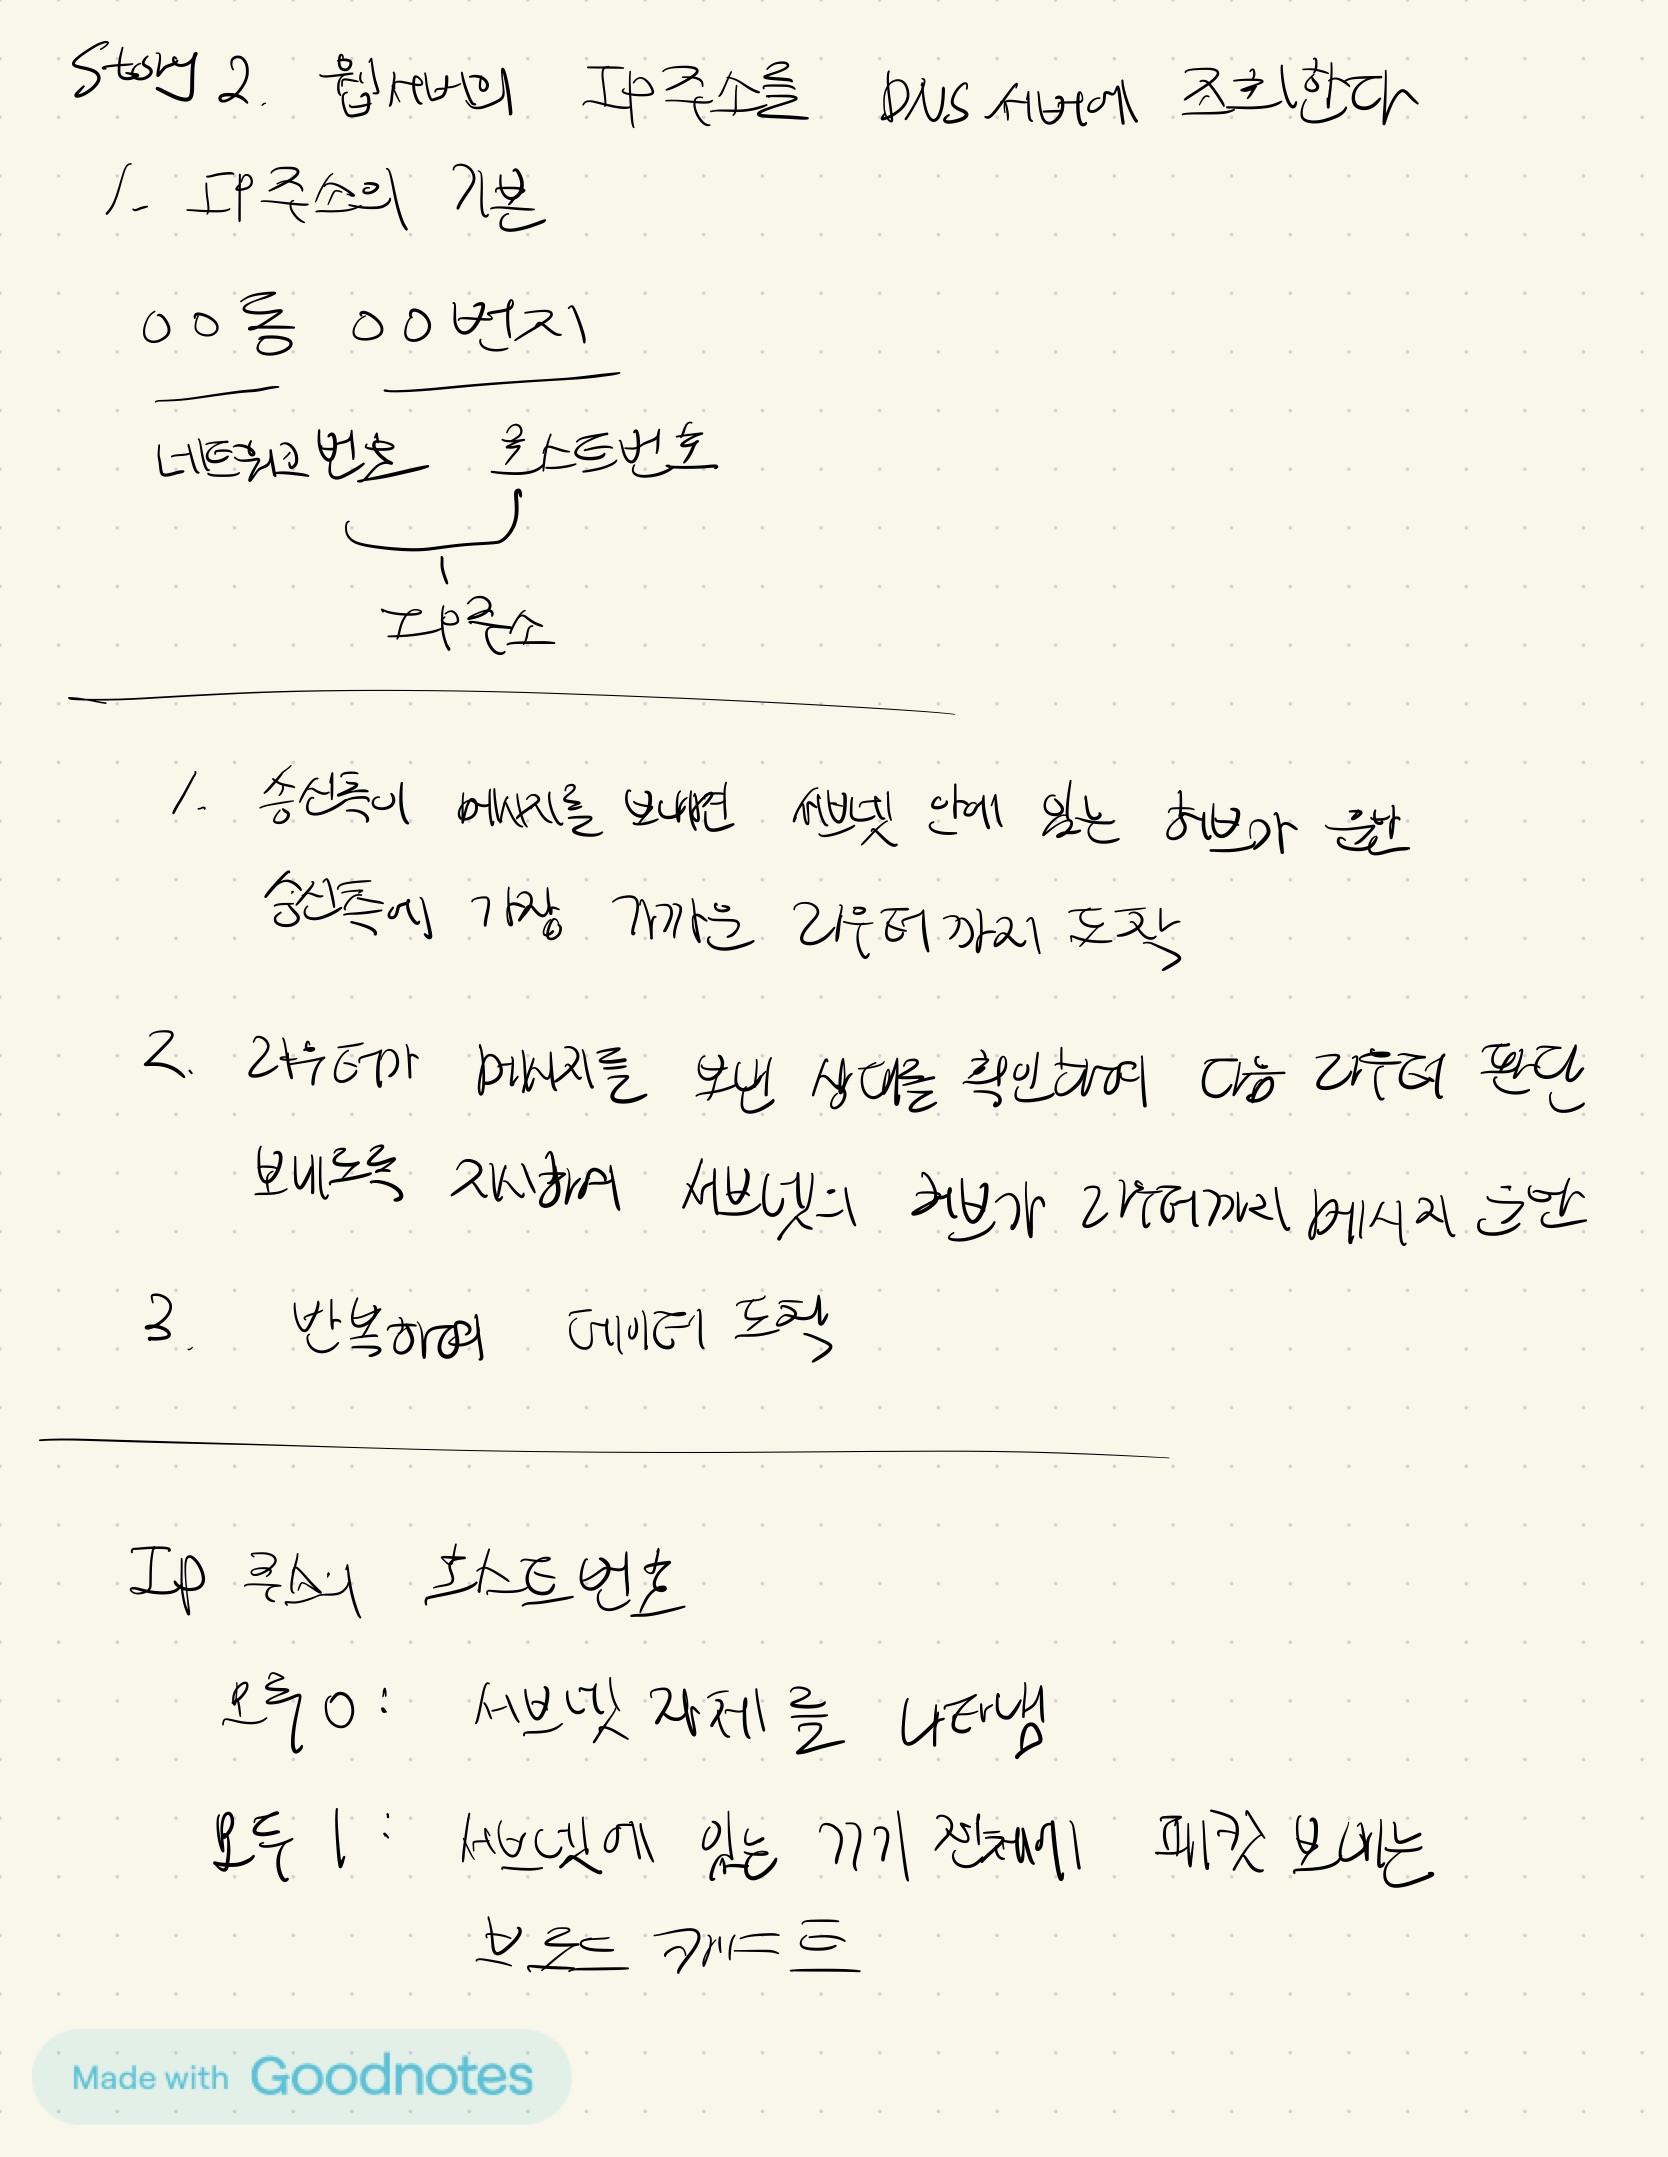 Story 2. 웹서버의 IP주소를 DNS서버에 조회한다
1. IP주소의 기본
00동 00번지
네트워크번호 호스트번호
IP주소
1. 송신측이 메시지를 보내면 서브넷 안에 있는 허브가 운반
송신측에 가장 가까운 라우터까지 도착
2. 라우터가 메시지를 보낸 상대를 확인하여 다음 라우터 판단
보내도록 지시하여 서브넷의 허브가 라우터까지 메시지 운반
3. 반복하여 데이터 도착
IP 주소의 호스트번호
모두 0: 서브넷 자체를 나타냄
모두 1: 서브넷에 있는 기기 전체에 패킷 보내는
브로드캐스트
Made with Goodnotes